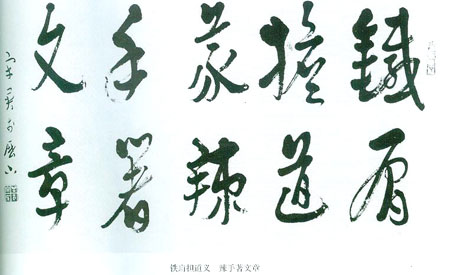 鐵肩
擔道
義辣
手著
文章
铁肩担道义 辣手著文章